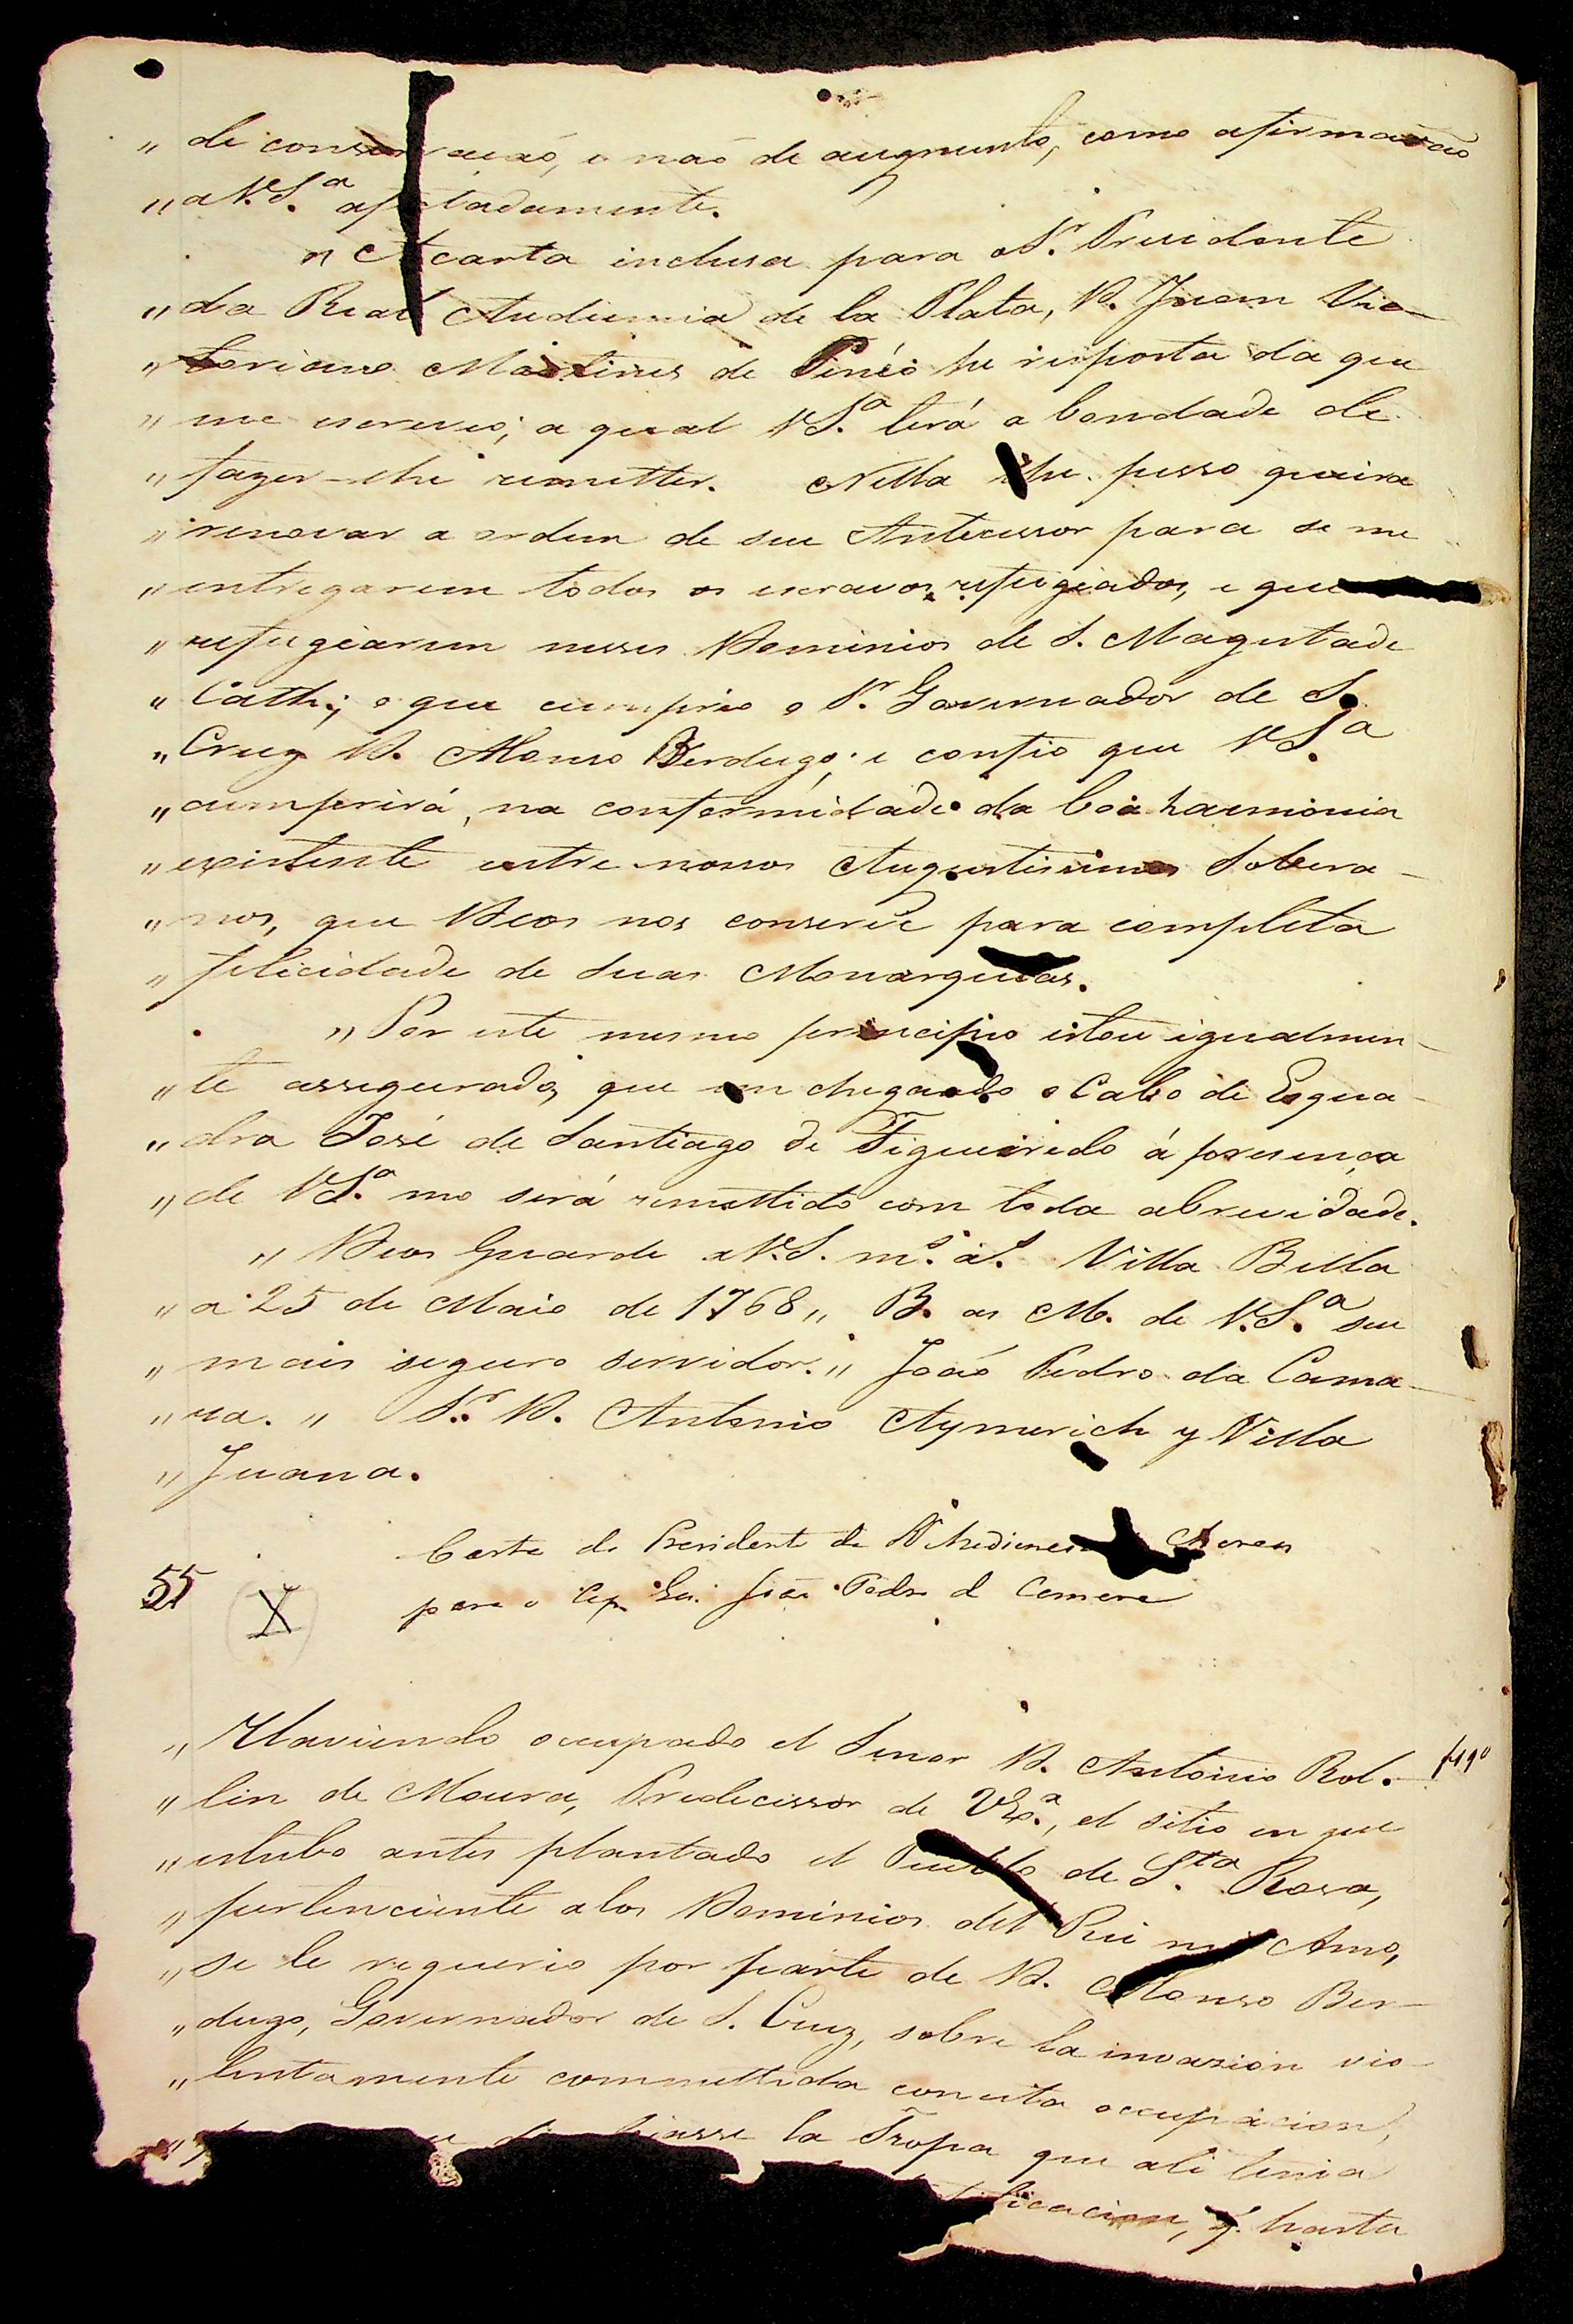 „ de conservação, e não de augmento, como afirmavão
„ a V.S.ª afectadamente.
„ A carta inclusa para o S.r Presidente
„ da Real Audiencia de la Plata, D. Juam Vic-
„ toriano Martines de Tinéo he resposta da que
„ me escreveo; a qual V.S.ª terá a bondade de
„ fazer-lhe remetter. Nella lhe pesso queira
„ renovar a ordem de seu Antecessor para se me
„ entregarem todos os escravos refugiados, e que
„ refugiarem nesses Dominios de S. Magestade
„ Cath.; o que cumprio o S.r Governador de S.
„ Cruz D. Alonso Berdugo; e confio que V.S.ª
„ cumprirá, na conformidade da boa harmonia
„ existente entre nossos Augustissimos Sobera-
„ nos, que Deos nos conserve para completa
„ felicidade de suas Monarquias.
„ Por este mesmo principio estou igualmen-
„ te assegurado, que em chegando o Cabo de Esqua-
„ dra José de Santiago de Figueiredo á presença
„ de V.S.ª me será remettido com toda abreuidade.
„ Deos Guarde a V.S. m.s a.s Villa Bella
„ a 25 de Maio de 1768 „ B. as M. de V.S.ª seu
„ mais seguro servidor. „ João Pedro da Cama-
„ ra. „ S.r D. Antonio Aymerich y Villa
„ Juana.
Carta do Presidente da Audiencia Charcas
55 X para o Cap. Gen. João Pedro da Camara
„ Haviendo occupado el Senor D. Antonio Rol-
„ lin de Moura, Predecessor de VEx.ª, el sitio en que
„ estubo antes plantado el Pueblo de S.ta Rosa,
„ pertenciente a los Dominios del Rei mi Amo,
„ se le requerio por parte de D. Alonso Ber-
„ dugo, Governador de S. Cruz, sobre la invazión vio-
„ lentamente commettida con esta occupacion,
„ la Tropa que ali tenia
hasta